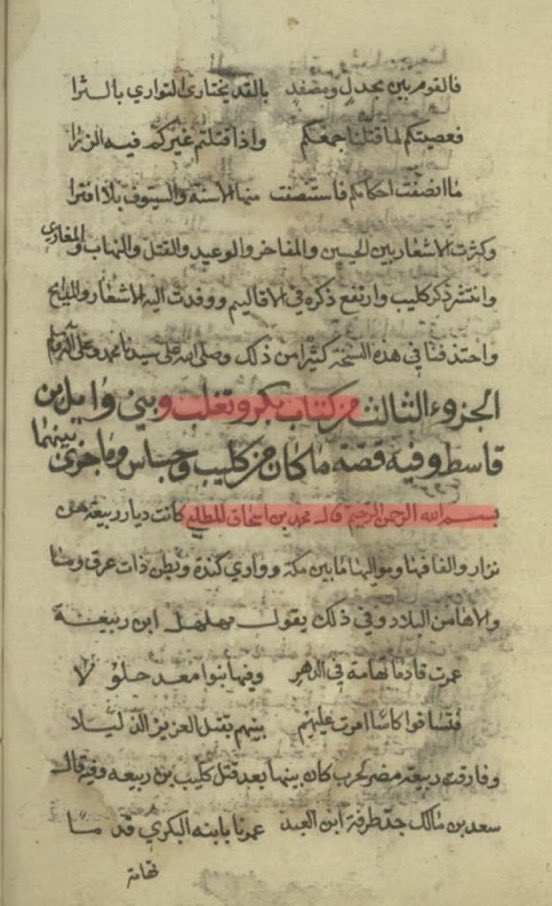 فالقوم بين مجدل ومصفد بالقد يختار التواري بالثرا
فعصيتكم لما قتلنا جمعكم واذا قتلتم غيركم فيه الزرا
ما انصفت احكامكم فاستنصفت منها الاسنة والسيوف بلا افترا
وكثرت الاشعار بين الحيين والمفاخر والوعيد والقتل والنهاب والمغازي
وانتشر ذكر كليب وارتفع ذكره في الاقاليم ووفدت اليه الاشعار والمدايح
واحتذفنا في هذه النسخة كثيرا من ذلك وصلى الله على سيدنا محمد وعلى آله وسلم
الجزوء الثالث من كتاب بكر وتغلب وبني وايل بن
قاسط وفيه قصة ما كان من كليب وجساس وما جرى بينهما
بسم الله الرحمن الرحيم قال محمد بن اسحاق المطلبي كانت ديار ربيعة بن
نزار والفافها ومواليها ما بين مكة ووادي كندة وبطن ذات عرق وما
والاها من البلاد وفي ذلك يقول مهلهل ابن ربيعة
عمرت قادما تهامة في الدهر وفيها بنوا معد حلولا
فتساقوا كاسا امرت عليهم بينهم يقتل العزيز الذليلا
وفارقت ربيعة مضر لحرب كان بينها بعد قتل كليب بن ربيعه وفيه قال
سعد بن مالك جد طرفة ابن العبد عمرنا يابنه البكري قدما
تهامة